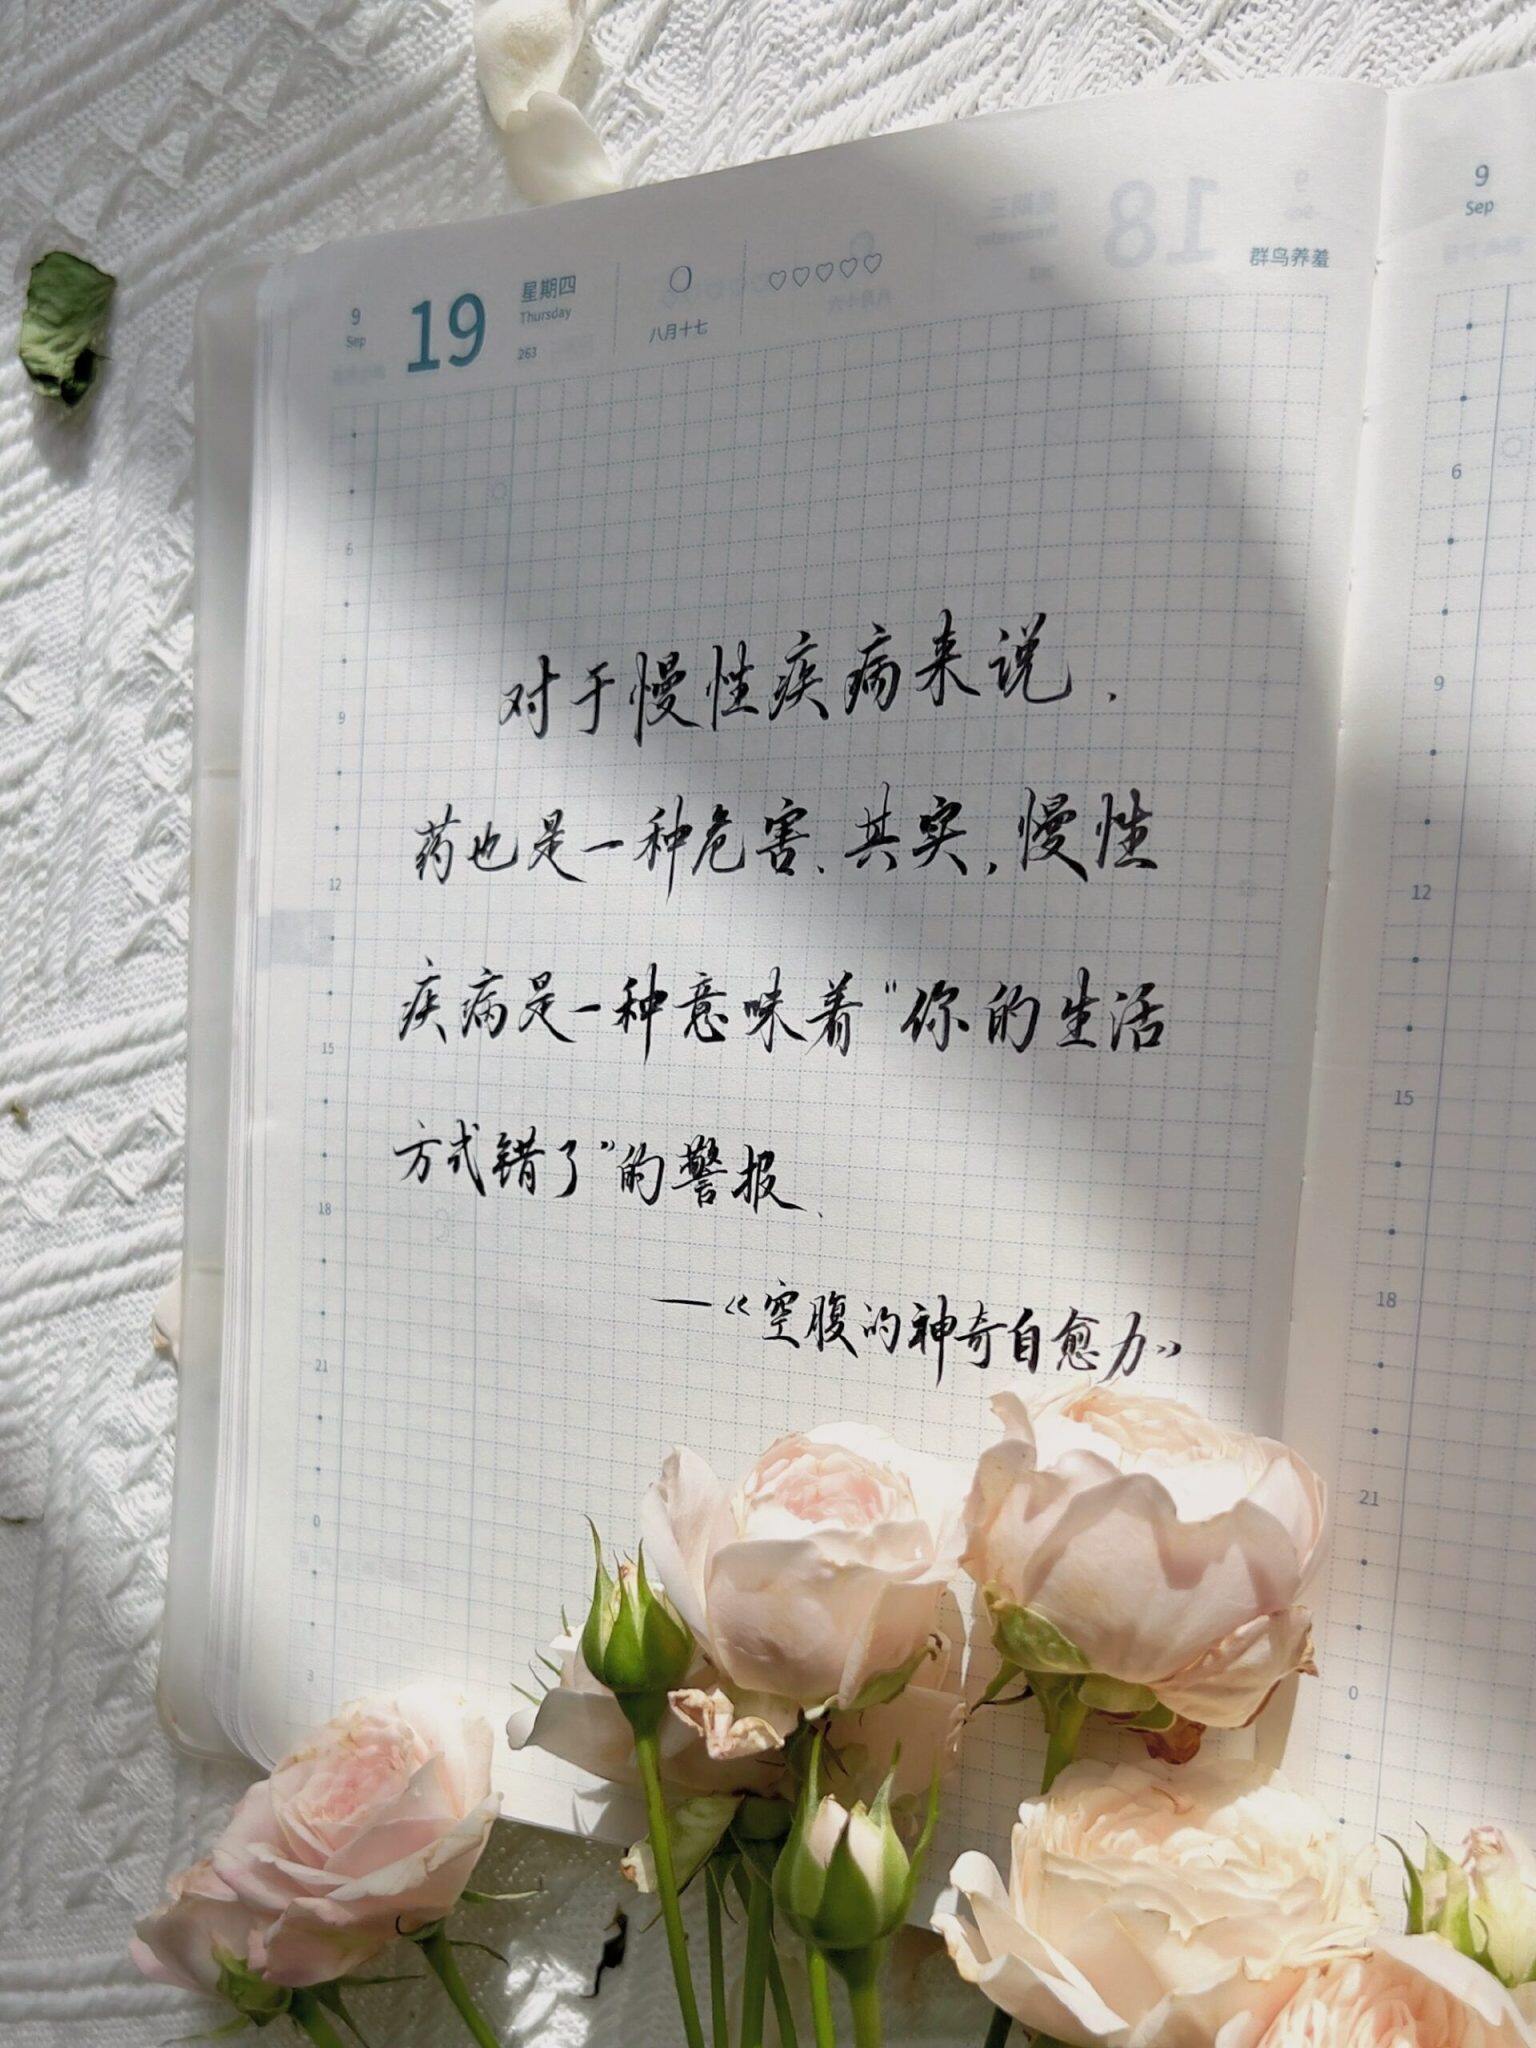 9
Sep
19
星期四
Thursday
263
八月十七
18
群鸟养羞
9
Sep
对于慢性疾病来说,
药也是一种危害、其实,慢性
疾病是一种意味着“你的生活
方式错了”的警报、
—《空腹的神奇自愈力》
6
9
12
15
18
21
0
3
6
9
12
15
18
21
0